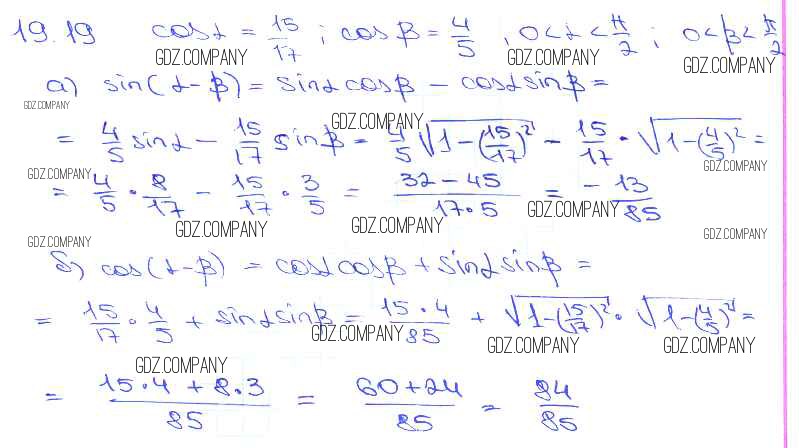 19.19 cos α = 15/17 ; cos β = 4/5 , 0 < α < π/2 ; 0 < β < π/2
GDZ.COMPANY GDZ.COMPANY GDZ.COMPANY
а) sin(α - β) = sin α cos β - cos α sin β =
GDZ.COMPANY GDZ.COMPANY
= 4/5 sin α - 15/17 sin β = 4/5 √(1 - (15/17)²) - 15/17 · √(1 - (4/5)²) =
GDZ.COMPANY GDZ.COMPANY
= 4/5 · 8/17 - 15/17 · 3/5 = (32 - 45)/(17 · 5) = - 13/85
GDZ.COMPANY GDZ.COMPANY GDZ.COMPANY
GDZ.COMPANY GDZ.COMPANY
б) cos(α - β) = cos α cos β + sin α sin β =
= 15/17 · 4/5 + sin α sin β = 15 · 4/85 + √(1 - (15/17)²) · √(1 - (4/5)²) =
GDZ.COMPANY GDZ.COMPANY GDZ.COMPANY
GDZ.COMPANY
= (15 · 4 + 8 · 3)/85 = (60 + 24)/85 = 84/85